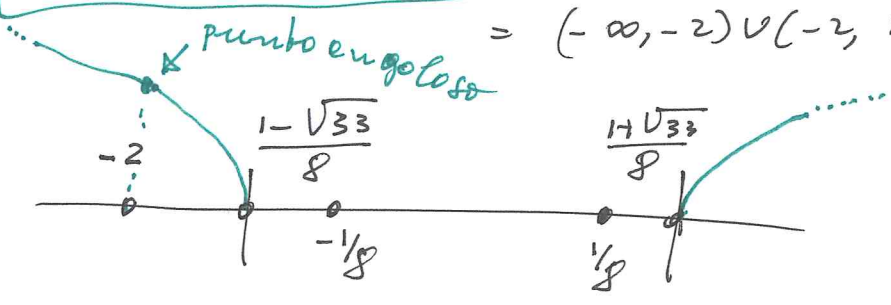 = (-∞, -2) ∪ (-2,
punto engoloso
-2
1-√33
8
1+√33
8
-1/8
1/8